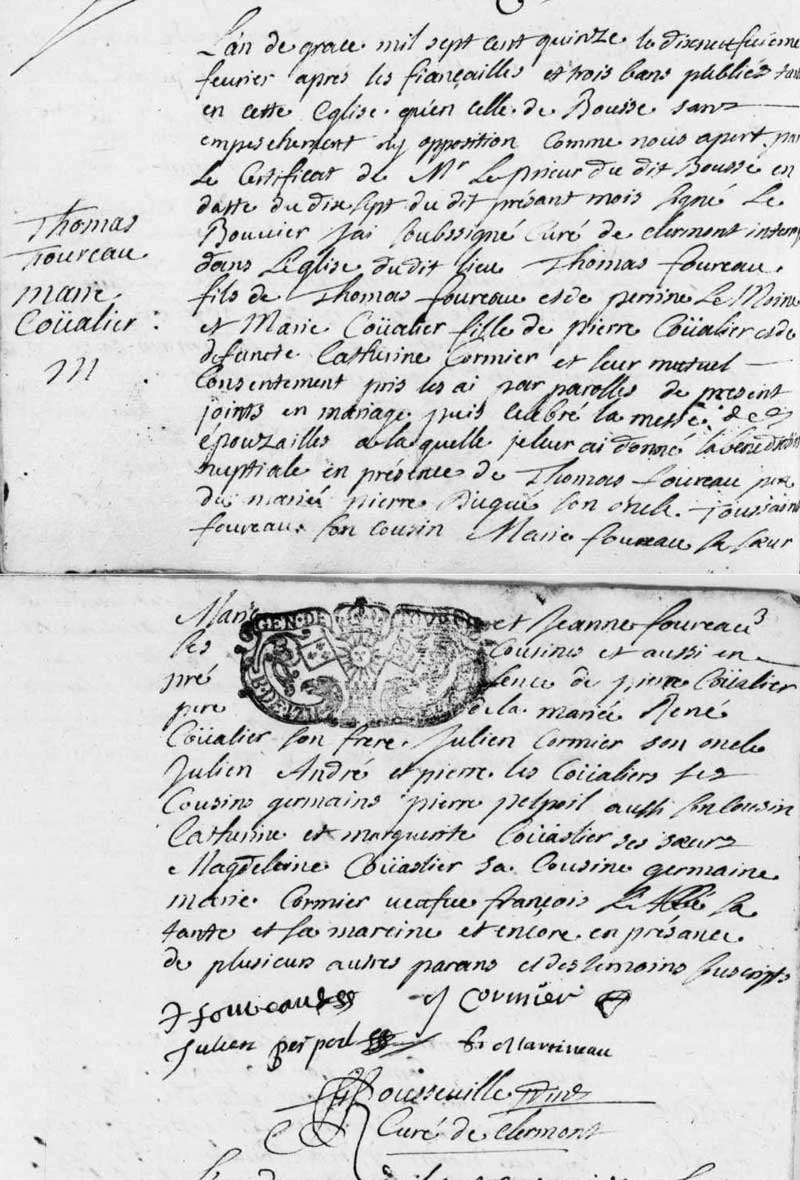 L'an de grace mil sept cent quinze le dixneufuieme
feurier aprés les fiançailles et trois bans publiéz tant
en cette Eglise qu'en celle de Bousse sans
empeschement ny opposition Comme nous apert par
Le Certificat de Mr Le prieur du dit Bousse en
datte du dix sept du dit présant mois signé Le
Bouuier J'ai soubssigné Curé de clermont
dans L'eglise du dit lieu Thomas foureau
fils de Thomas foureau et de perrine Le Moine
et Marie Coüalier fille de pierre Coüalier et de
defuncte Catherine Cormier et leur mutuel
Consentement pris les ai par parolles de present
joints en mariage puis celebré la messe des
épouzailles a laquelle je leur ai donné la benediction
nuptiale en présence de Thomas foureau pere
du marié pierre Dugué son oncle toussaint
foureau son cousin Marie foureau sa sœur
Thomas
foureau
marie
Coüalier :
M
Marie et Jeanne foureau
les Cousines et aussi en
pré sence de pierre Coüalier
pere de la mariée René
Coüalier son frere Julien Cormier son oncle
Julien André et pierre les Coüaliers ses
Cousins germains pierre pelpoil aussi son cousin
Catherine et marguerite Coüaslier ses sœurs
Magdeleine Coüaslier sa Cousine germaine
marie Cormier ueafue françois sa
tante et sa mareine et encore en présance
de plusieurs autres parans et des temoins
GEN·DE
T foureau J Cormier
Julien pelpoil Martineau
Curé de clermont